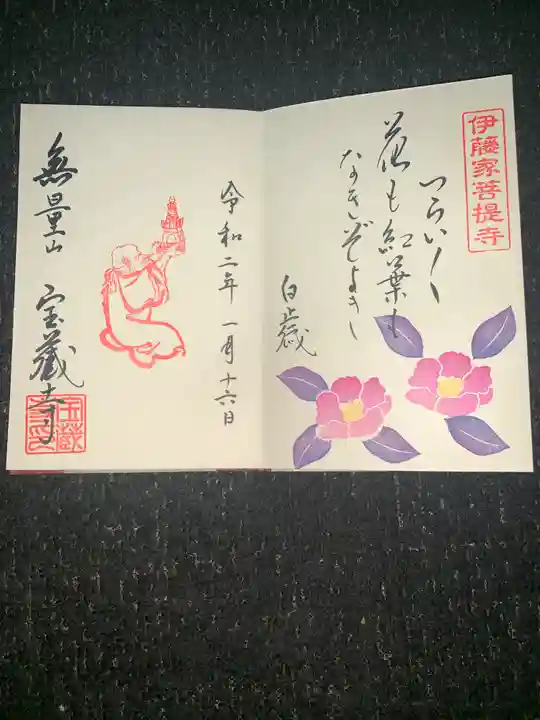 伊藤家菩提寺
つらい〱
花も紅葉も
なきぞよき
白歳
令和二年 一月十六日
無量山 宝蔵寺